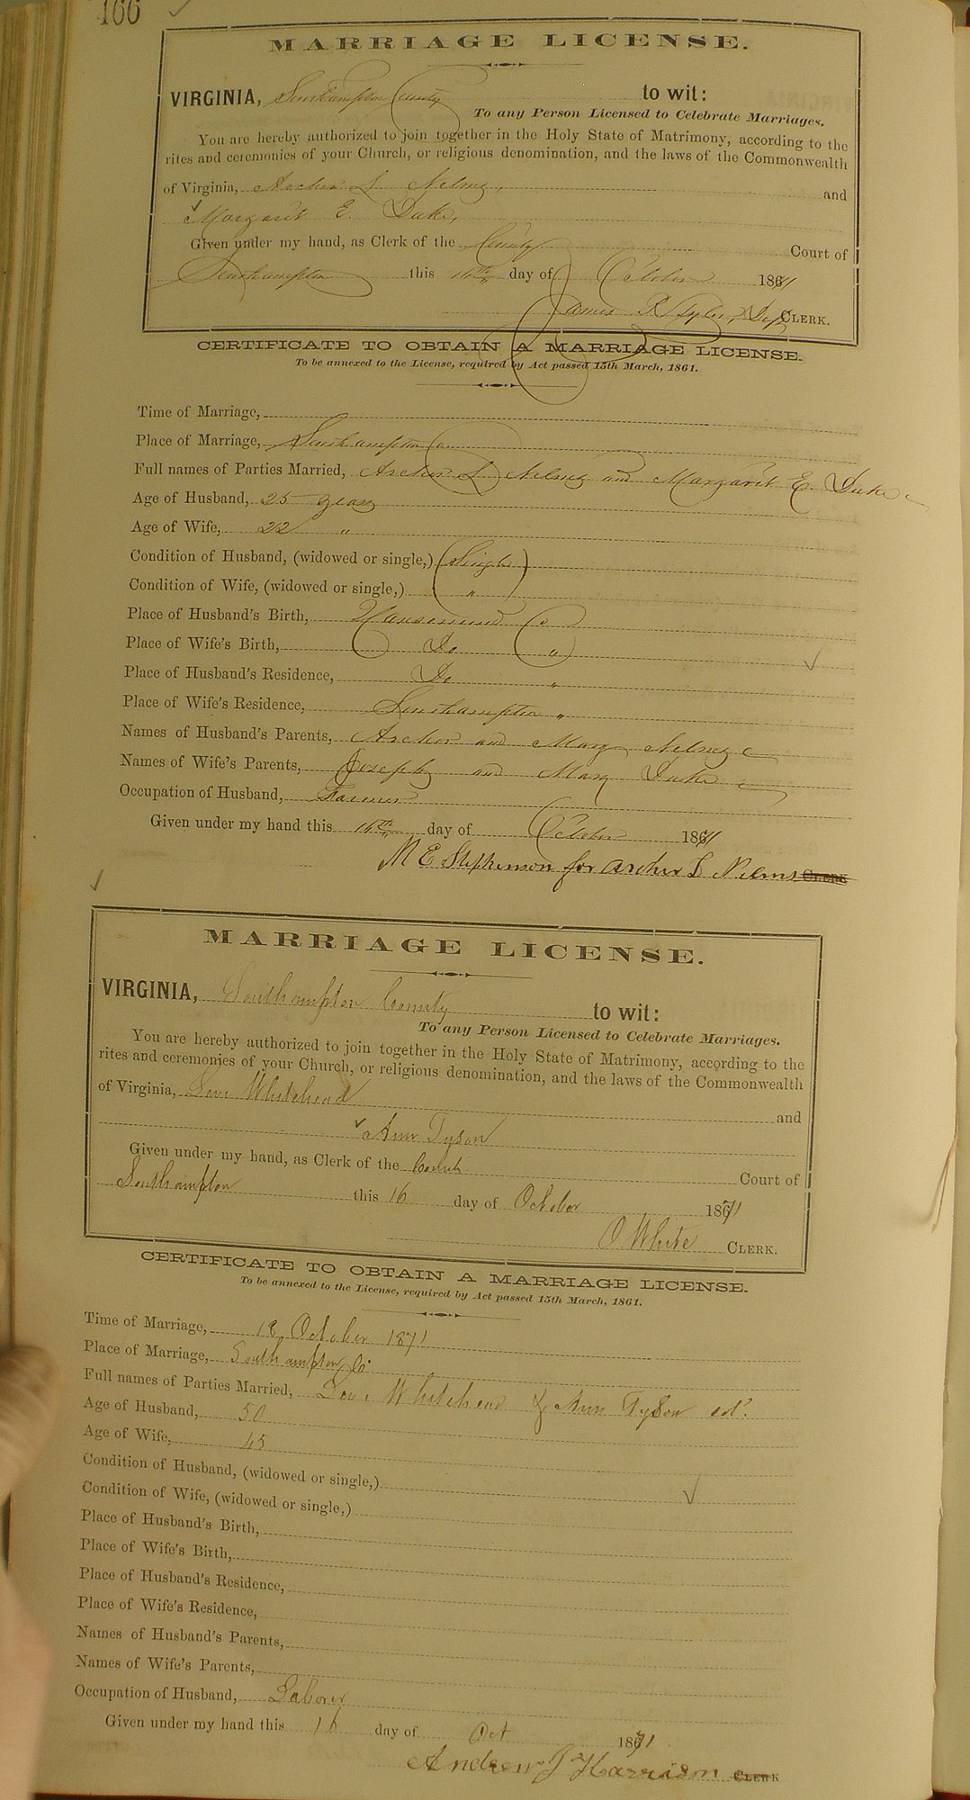 166
MARRIAGE LICENSE.
VIRGINIA, Southampton County to wit:
To any Person Licensed to Celebrate Marriages.
You are hereby authorized to join together in the Holy State of Matrimony, according to the
rites and ceremonies of your Church, or religious denomination, and the laws of the Commonwealth
of Virginia, Archer L Nelms, and
Margaret E. Duke,
Given under my hand, as Clerk of the County Court of
Southampton this 16th day of October 1871
James R Tyler, Dep CLERK.
CERTIFICATE TO OBTAIN A MARRIAGE LICENSE.
To be annexed to the License, required by Act passed 15th March, 1861.
Time of Marriage,
Place of Marriage, Southampton Co
Full names of Parties Married, Archer L Nelms and Margaret E. Duke
Age of Husband, 25 years
Age of Wife, 22 "
Condition of Husband, (widowed or single,) Single
Condition of Wife, (widowed or single,) "
Place of Husband's Birth, Nansemond Co
Place of Wife's Birth, Do "
Place of Husband's Residence, Do "
Place of Wife's Residence, Southampton "
Names of Husband's Parents, Archer and Mary Nelms
Names of Wife's Parents, Joseph and Mary Duke
Occupation of Husband, Farmer
Given under my hand this 16th day of October 1871
M E Stephenson for Archer L Nelms CLERK
MARRIAGE LICENSE.
VIRGINIA, Southampton County to wit:
To any Person Licensed to Celebrate Marriages.
You are hereby authorized to join together in the Holy State of Matrimony, according to the
rites and ceremonies of your Church, or religious denomination, and the laws of the Commonwealth
of Virginia, Whitehead and
Ann Tyson
Given under my hand, as Clerk of the County Court of
Southampton this 16 day of October 1871
O White CLERK.
CERTIFICATE TO OBTAIN A MARRIAGE LICENSE.
To be annexed to the License, required by Act passed 15th March, 1861.
Time of Marriage, 18 October 1871
Place of Marriage, Southampton Co
Full names of Parties Married, Whitehead & Ann Tyson col'.
Age of Husband, 50
Age of Wife, 45
Condition of Husband, (widowed or single,)
Condition of Wife, (widowed or single,)
Place of Husband's Birth,
Place of Wife's Birth,
Place of Husband's Residence,
Place of Wife's Residence,
Names of Husband's Parents,
Names of Wife's Parents,
Occupation of Husband, Laborer
Given under my hand this 16 day of Oct 1871
Andrew J Harrison CLERK